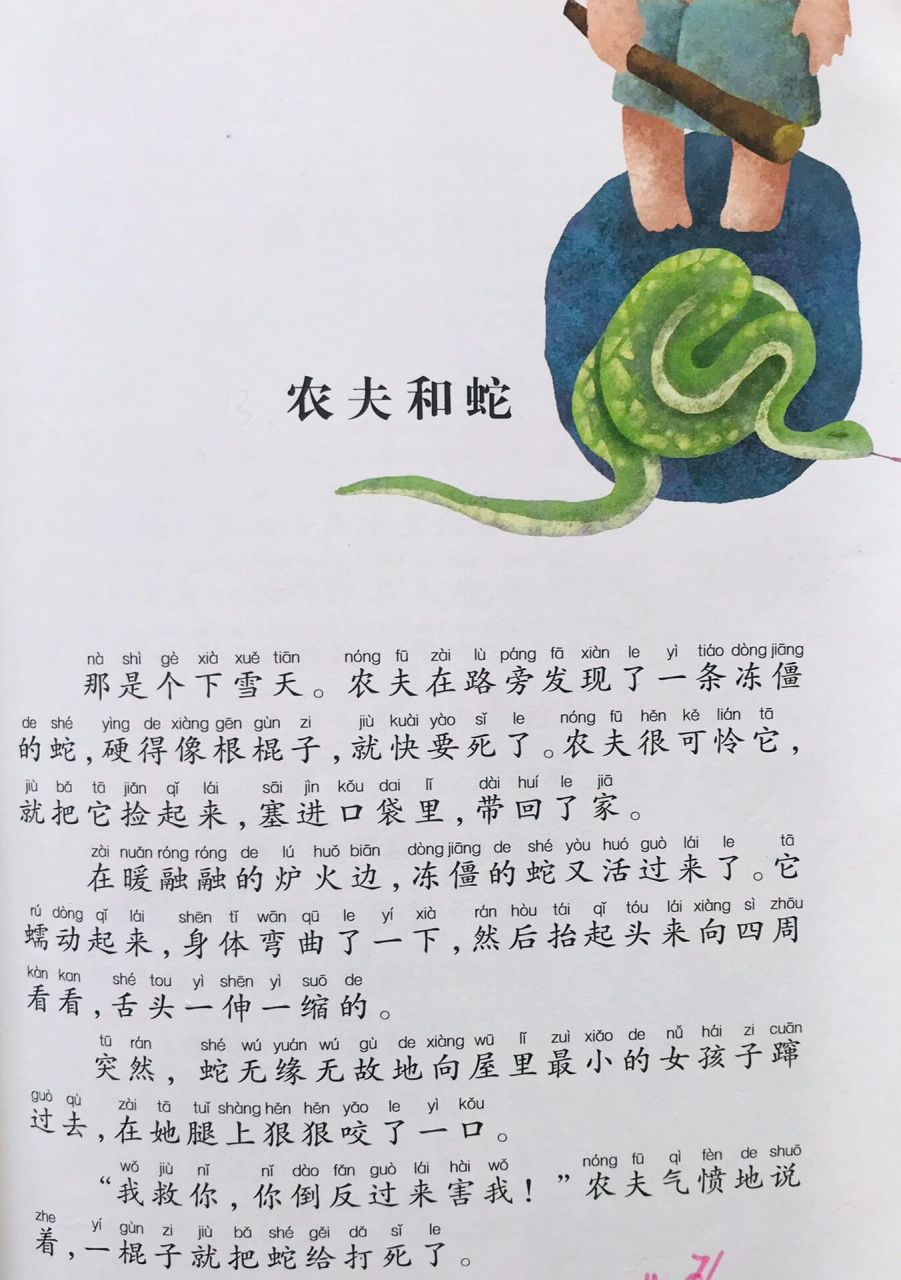 农夫和蛇
nà shì gè xià xuě tiān nóng fū zài lù páng fā xiàn le yì tiáo dòng jiāng
那是个下雪天。农夫在路旁发现了一条冻僵
de shé yìng de xiàng gēn gùn zi jiù kuài yào sǐ le nóng fū hěn kě lián tā
的蛇,硬得像根棍子,就快要死了。农夫很可怜它,
jiù bǎ tā jiǎn qǐ lái sāi jìn kǒu dai lǐ dài huí le jiā
就把它捡起来,塞进口袋里,带回了家。
zài nuǎn róng róng de lú huǒ biān dòng jiāng de shé yòu huó guò lái le tā
在暖融融的炉火边,冻僵的蛇又活过来了。它
rú dòng qǐ lái shēn tǐ wān qū le yí xià rán hòu tái qǐ tóu lái xiàng sì zhōu
蠕动起来,身体弯曲了一下,然后抬起头来向四周
kàn kan shé tou yì shēn yì suō de
看看,舌头一伸一缩的。
tū rán shé wú yuán wú gù de xiàng wū lǐ zuì xiǎo de nǚ hái zi cuān
突然,蛇无缘无故地向屋里最小的女孩子蹿
guò qù zài tā tuǐ shàng hěn hěn yǎo le yì kǒu
过去,在她腿上狠狠咬了一口。
wǒ jiù nǐ nǐ dào fǎn guò lái hài wǒ nóng fū qì fèn de shuō
“我救你,你倒反过来害我!”农夫气愤地说
zhe yí gùn zi jiù bǎ shé gěi dǎ sǐ le
着,一棍子就把蛇给打死了。